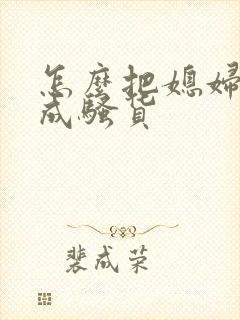 怎麼把媳婦
成騷貨
裴成荣